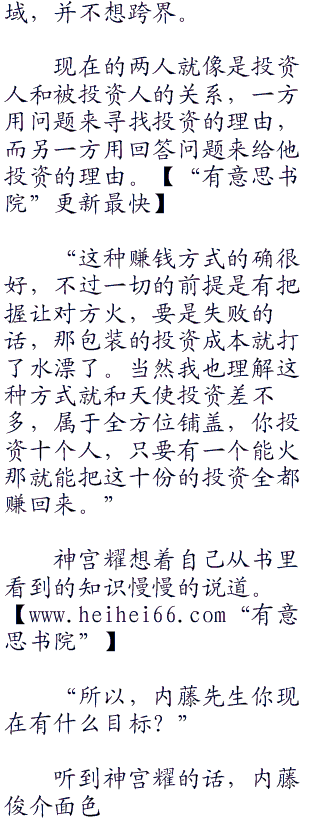 域，并不想跨界。
现在的两人就像是投资
人和被投资人的关系，一方
用问题来寻找投资的理由，
而另一方用回答问题来给他
投资的理由。【“有意思书
院”更新最快】
“这种赚钱方式的确很
好，不过一切的前提是有把
握让对方火，要是失败的
话，那包装的投资成本就打
了水漂了。当然我也理解这
种方式就和天使投资差不
多，属于全方位铺盖，你投
资十个人，只要有一个能火
那就能把这十份的投资全都
赚回来。”
神宫耀想着自己从书里
看到的知识慢慢的说道。
【www.heihei66.com“有意
思书院”】
“所以，内藤先生你现
在有什么目标？”
听到神宫耀的话，内藤
俊介面色